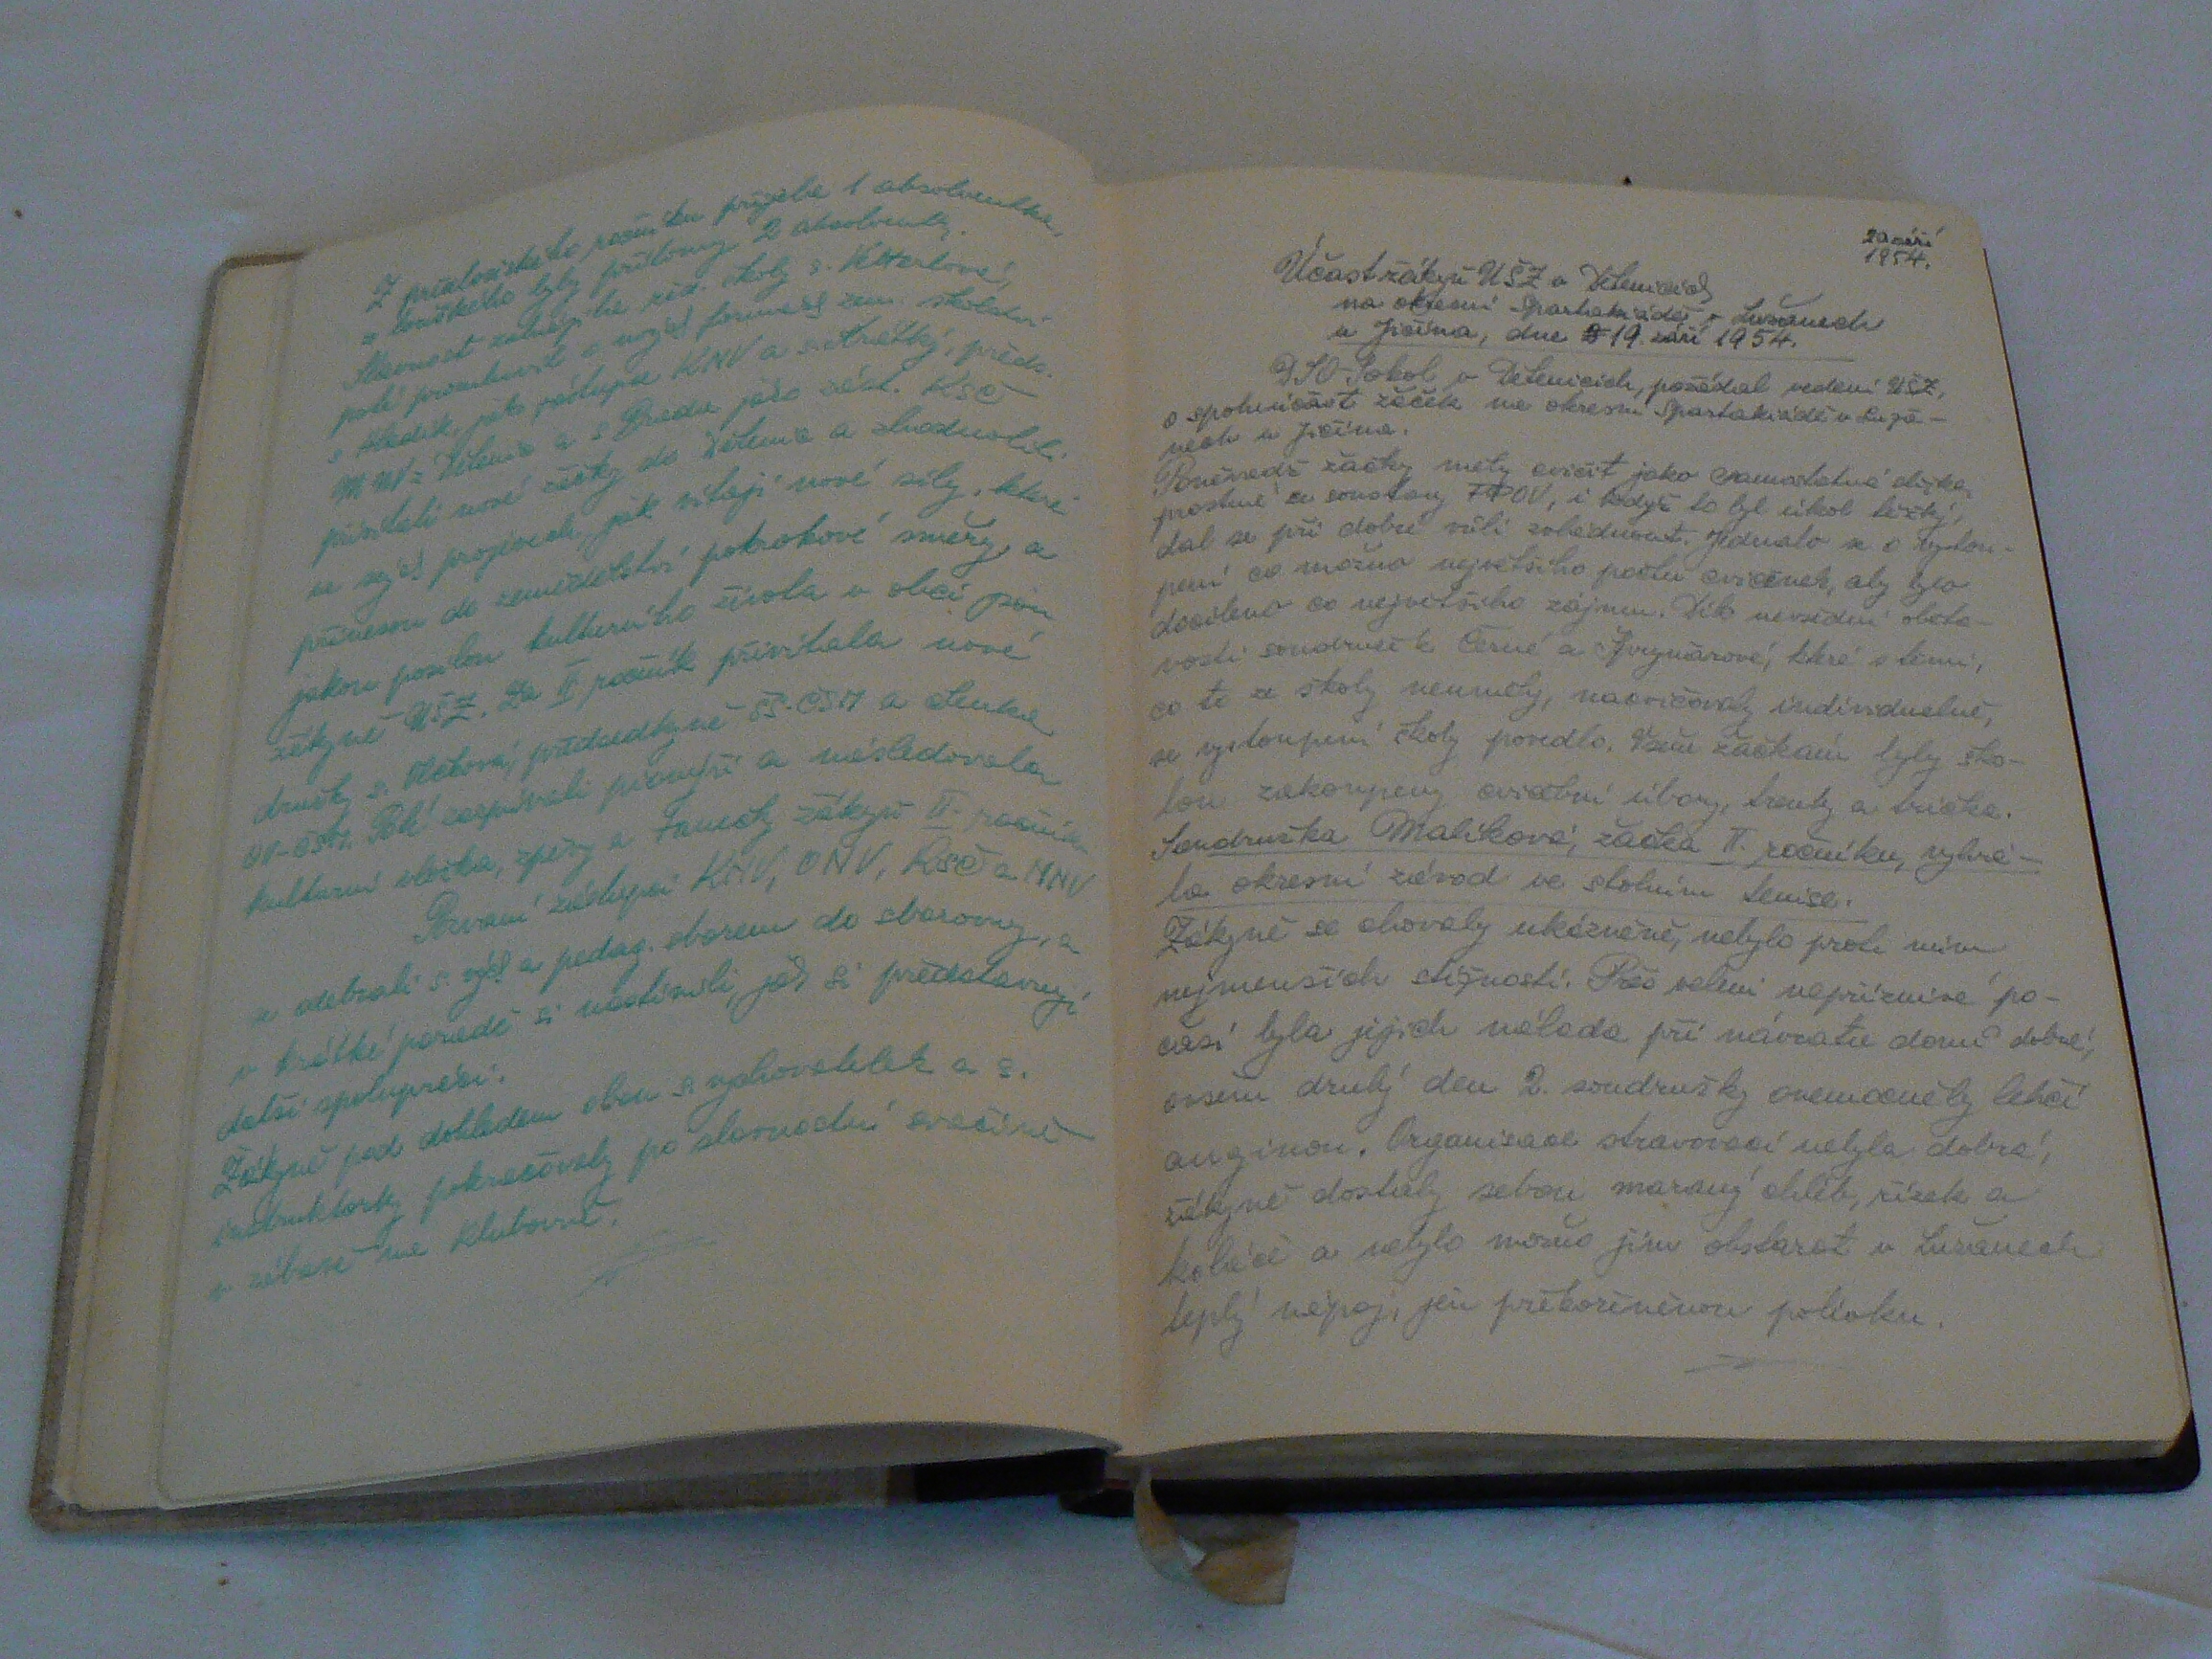 Z předloňského ročníku přijela 1 absolventka,
z loňského byly přítomny 2 absolventky.
Slavnost zahájila řed. školy s.
poté promluvil o nových formách zem. školství
s. Sledík, jako zástupce KNV a s. Krátký, předs.
MNV z Dětenic a s. Breda jako zást. KSČ
přivítali nové žačky do Dětenic a zhodnotili
ve svých projevech, jak vítají nové síly, které
přinesou do zemědělství pokrokové směry, a
jakou posilou kulturního života v obci jsou
žákyně UŠZ. Za II ročník přivítala nové
družky s. předsedkyně SŠ-ČSM a Lenka
OV-ČSM. Poté zazpívali pionýři a následovala
kulturní vložka, zpěvy a tanečky žákyň II. ročníku.
Pozvaní zástupci KNV, ONV, KSČ a MNV
se odebrali s. vých a pedag. sborem do sborovny, a
v krátké poradě si nastínili, jak si představují
další spolupráci.
Žákyně pod dohledem obou s. vychovatelek a s.
instruktorky pokračovaly po slavnostní svačině
v zábavě na klubovně.
20 září
1954.
Účast žákyň UŠZ v Dětenicích
na okresní Spartakiádě v Lužanech
u Jičína, dne 19. září 1954.
DSO-Sokol v Dětenicích, požádal vedení UŠZ,
o spoluúčast žaček na okresní Spartakiádě v Luža-
nech u Jičína.
Poněvadž žačky měly cvičit jako samostatná složka,
prostné ze soustavy TPOV, i když to byl úkol těžký,
dal se při dobré vůli zvládnout. Jednalo se o vystou-
pení co možno největšího počtu cvičenek, aby bylo
docíleno co největšího zájmu. Dík nevšední oběta-
vosti soudružek Černé a které s těmi,
co to ze školy neuměly, nacvičovaly individuelně,
se vystoupení školy povedlo. Všem žačkám byly ško-
lou zakoupeny cvičební úbory, trenky a trička.
Soudružka Malíková, žačka II. ročníku, vyhrá-
la okresní závod ve stolním tenise.
Žákyně se chovaly ukázněně, nebylo proti nim
nejmenších stížností. Přes velmi nepříznivé po-
časí byla jejich nálada při návratu domů dobrá,
ovšem druhý den 2. soudružky onemocněly lehčí
anginou. Organisace stravovací nebyla dobrá,
žákyně dostaly sebou mazaný chléb, řízek a
koláče a nebylo možno jim obstarat v Lužanech
teplý nápoj, jen překořeněnou polívku.